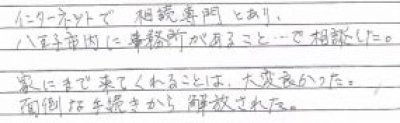 インターネットで 相続専門 とあり、
八王子市内に事務所があること…で相談した。
家にまで来てくれることは、大変良かった。
面倒な手続きから 解放された。